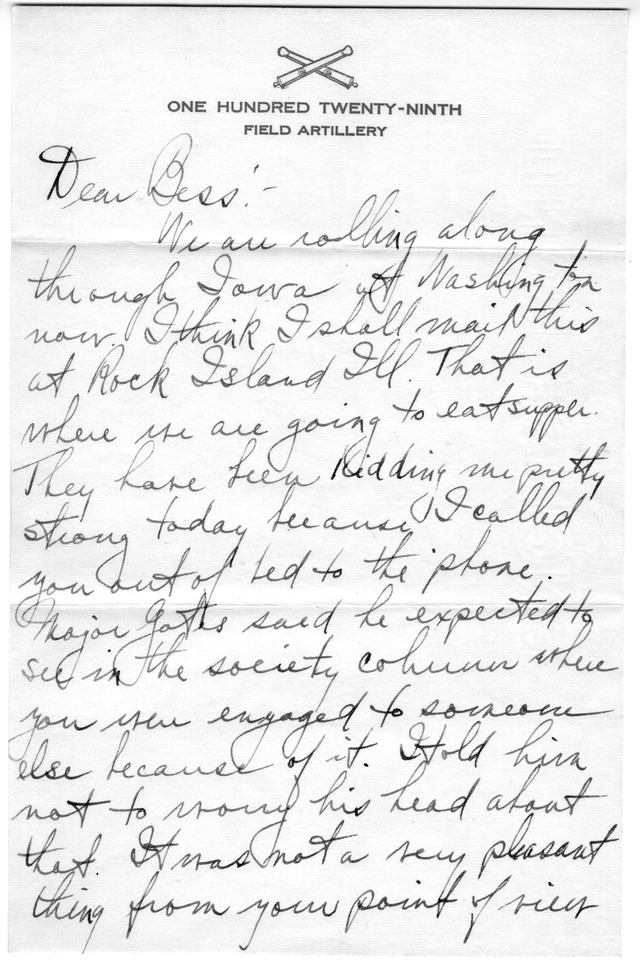 ONE HUNDRED TWENTY-NINTH
FIELD ARTILLERY
Dear Bess:-
We are rolling along
through Iowa at Washington
now. I think I shall mail this
at Rock Island Ill. That is
where we are going to eat supper.
They have been kidding me pretty
strong today because I called
you out of bed to the phone.
Major Gates said he expected to
see in the society column where
you were engaged to someone
else because of it. I told him
not to worry his head about
that. It was not a very pleasant
thing from your point of view